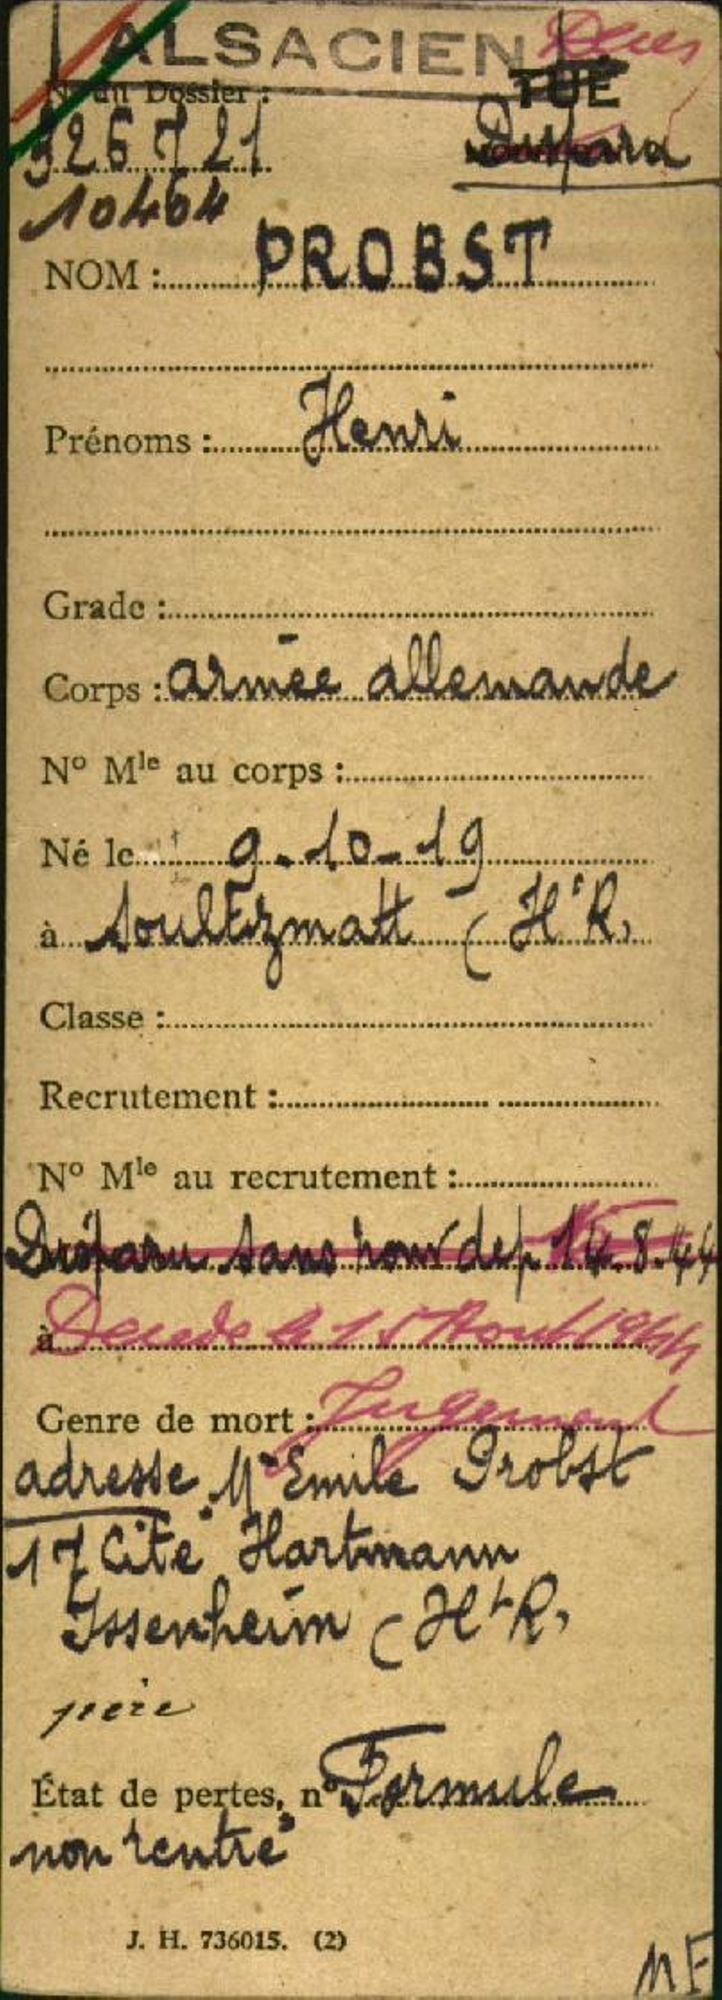 ALSACIEN
Nº du Dossier :
TUÉ
326721
Disparu
10464
NOM : PROBST
Prénoms : Henri
Grade :
Corps : armée allemande
Nº Mle au corps :
Né le 9-10-19
à Soultzmatt (Ht R,
Classe :
Recrutement :
Nº Mle au recrutement :
Disparu sans nouv dep 14.8.44
à Décédé le 15 Aout 1944
Genre de mort : Jugement
adresse Mr Emile Probst
17 Cité Hartmann
Issenheim (Ht R,
père
État de pertes, nº Formule
non rentré"
J. H. 736015. (2)
MF